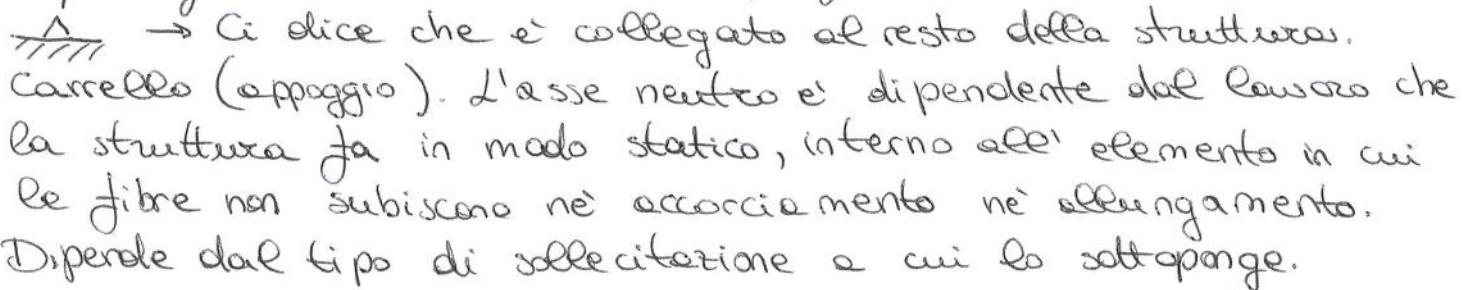 → Ci dice che è collegato al resto della struttura.
Carrello (appoggio). L'asse neutro e' dipendente dal lavoro che
la struttura fa in modo statico, interno all' elemento in cui
le fibre non subiscono nè accorciamento nè allungamento.
Dipende dal tipo di sollecitazione a cui lo sottoponge.